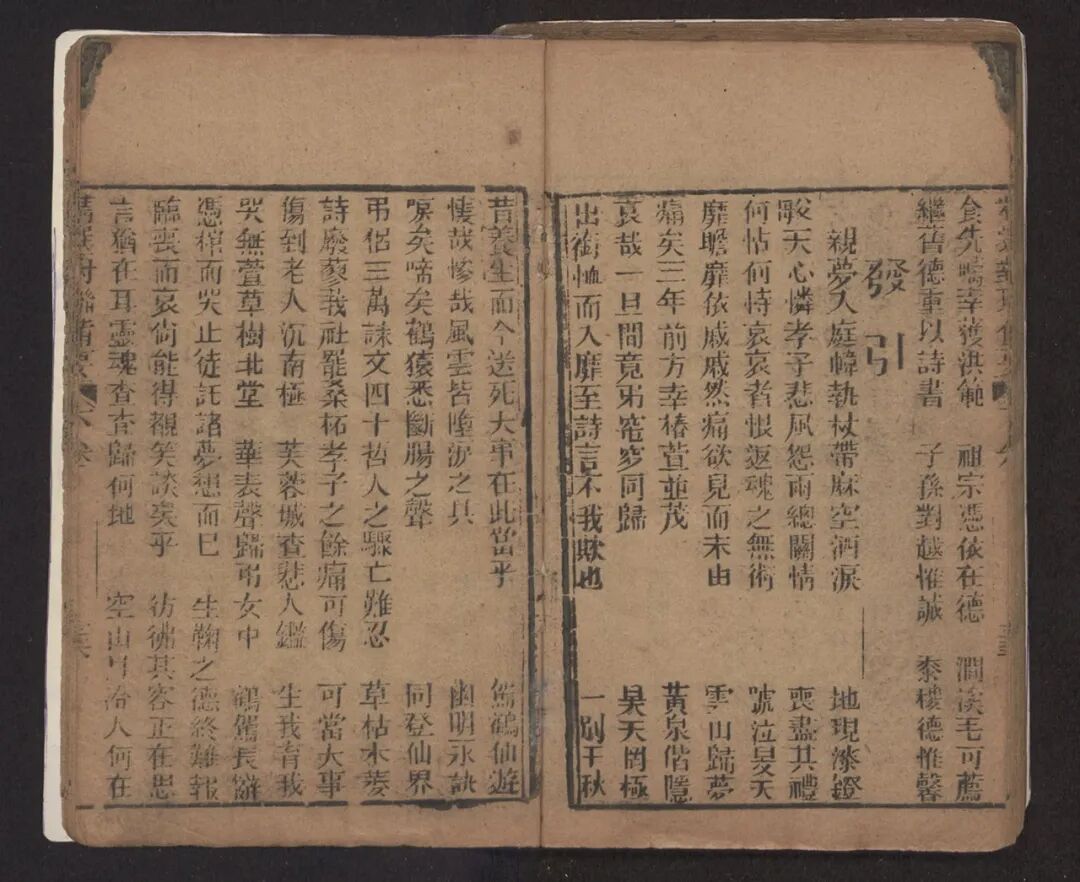 食先疇幸獲洪範　祖宗憑依在德　澗溪毛可薦
繼舊德重以詩書　子孫對越惟誠　黍稷德惟馨
發引
親夢入庭幃執杖帶麻空洒淚　地現漆鐙
毀天心憐孝子悲風怨雨總關情　喪盡其禮
何怙何恃哀哀者恨返魂之無術　號泣旻天
靡瞻靡依戚戚然痛欲見而未由　雲山歸夢
痛矣三年前方幸椿萱並茂　黃泉偕隱
哀哉一旦間竟弔窀穸同歸　昊天罔極
出銜恤而入靡至詩言不我欺也　一別千秋
昔養生而今送死大事在此當乎　鶴仙遊
悽哉慘哉風雲皆墮淚之具　幽明永訣
唳矣啼矣鶴猿悉斷腸之聲　同登仙界
弔侶三萬誄文四十哲人之驟亡難忍　草枯木萎
詩廢蓼莪社罷桑柘孝子之餘痛可傷　可當大事
傷到老人沉南極　芙蓉城杳悲人鑑　生我育我
哭無萱草樹北堂　華表聲歸弔女中　鶴催長辭
憑棺而哭止徒託諸夢想而已　生鞠之德終難報
臨喪而哀尙能得覩笑談矣乎　彷彿其容正在思
言猶在耳靈魂杳杳歸何地　空山月冷人何在